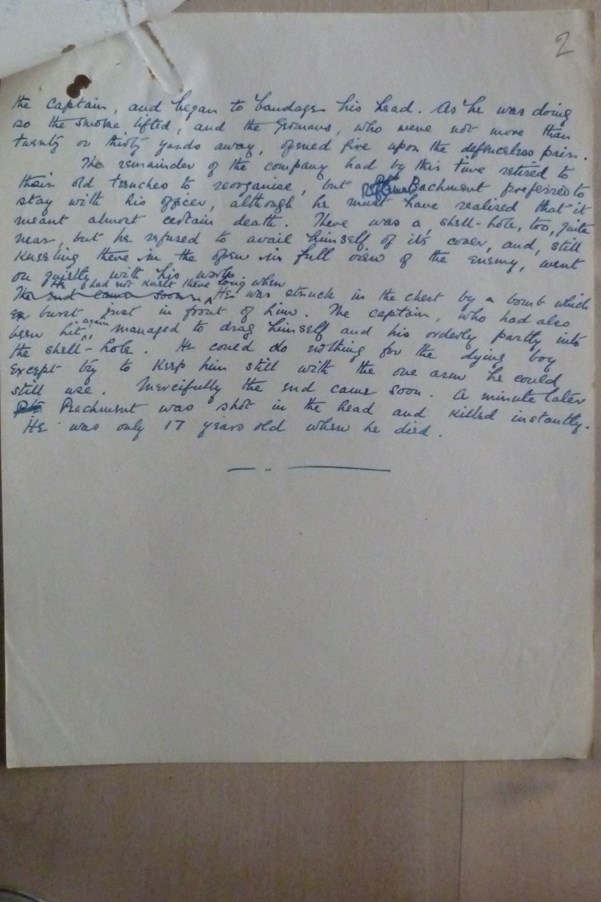 2
the captain, and began to bandage his head. As he was doing
so the smoke lifted, and the Germans, who were not more than
twenty or thirty yards away, opened fire upon the defenceless pair.
The remainder of the company had by this time retired to
their old trenches to reorganise, but Peachment preferred to
stay with his officer, although he must have realised that it
meant almost certain death. There was a shell-hole, too, quite
near, but he refused to avail himself of its cover, and, still
kneeling there in the open in full view of the enemy, went
on quietly with his work.
He had not knelt there long when
The end came soon. He was struck in the chest by a bomb which
burst just in front of him. The captain, who had also
been hit again, managed to drag himself and his orderly partly into
the shell-hole. He could do nothing for the dying boy
except try to keep him still with the one arm he could
still use. Mercifully the end came soon. A minute later
Peachment was shot in the head and killed instantly.
He was only 17 years old when he died.